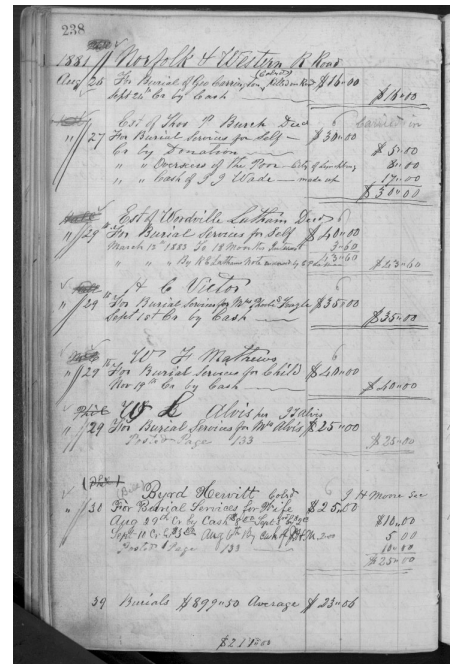 238
1881 Norfolk & Western R Road
Aug 26 For Burial of Geo Carrington (Colored) Killed on Road $16.00
Sept 24th Cr by Cash $16.00
Est of Thos P Burch Decd
" 27 For Burial Services for Self $30.00
Cr by Donation $5.00
" " Overseers of the Poor 8.00
" " Cash of J J Wade made up 17.00
$30.00
Est of Woodville Latham Decd
" 29 For Burial Services for Self $40.00
March 12th 1883 To 18 Months Interest 3.60
43.60
" " By R E Lathams Note $43.60
H C Victor
" 29 For Burial Services for Mrs $35.00
Sept 1st Cr by Cash $35.00
W H Mathews
" 29 For Burial Services for Child $40.00
Nov 19th Cr by Cash $40.00
W L Alvis
" 29 For Burial Services for Mrs Alvis $25.00
Posted Page 133 $25.00
Byrd Hewitt Cold J H Moore Sec
" 30 For Burial Services for Wife $25.00
Aug 29th Cr by Cash $10.00
Sept 10 Cr 5.00
Posted Page 133 10.00
$25.00
39 Burials $899.50 Average $23.06